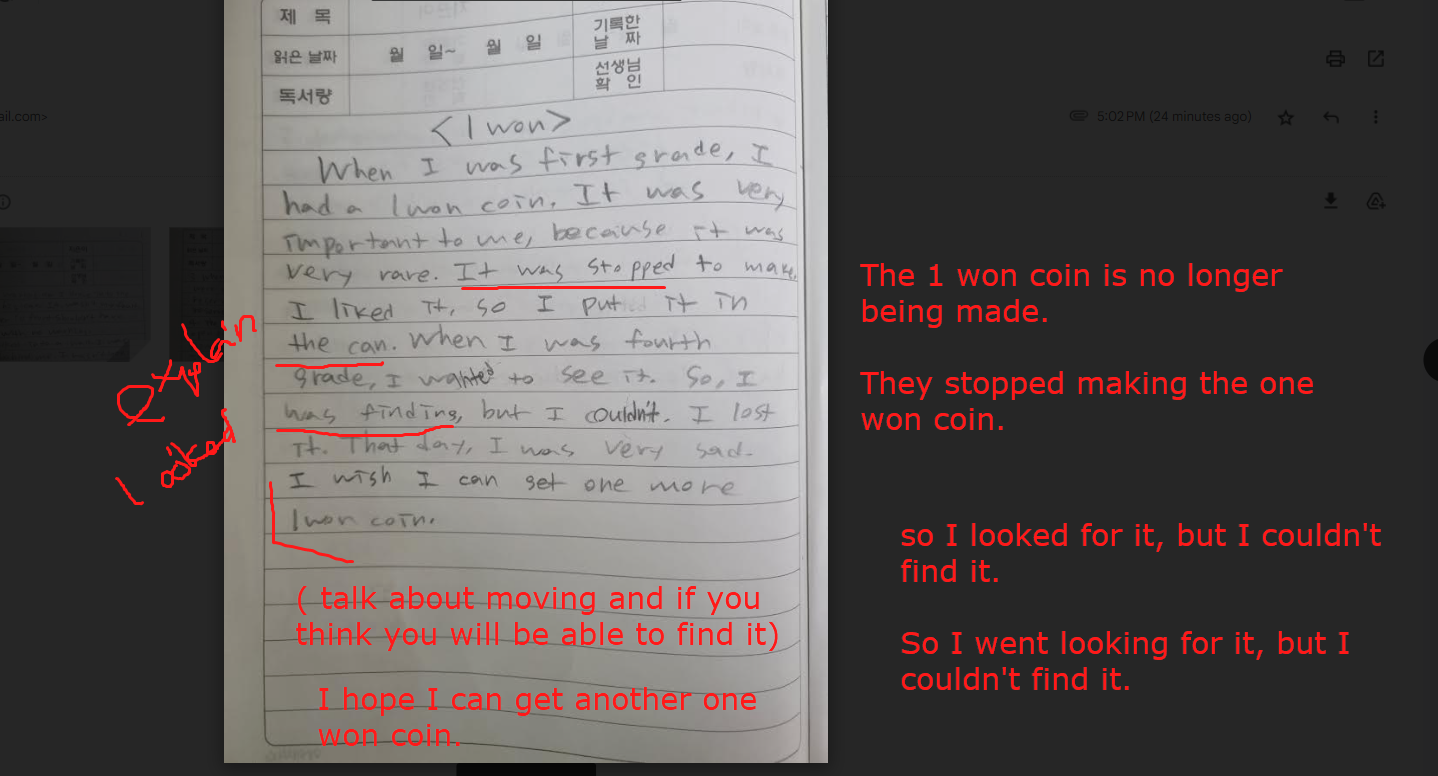 제 목
기록한 날 짜
읽은 날짜 월 일~ 월 일
선생님 확 인
독서량
ail.com>
5:02 PM (24 minutes ago)
<1 won>
When I was first grade, I
had a 1 won coin. It was very
important to me, because it was
very rare. It was stopped to make.
I liked it, so I put it in
the can. When I was fourth
grade, I wanted to see it. So, I
was finding, but I couldn't. I lost
it. That day, I was very sad.
I wish I can get one more
1 won coin.
explain
looked
( talk about moving and if you
think you will be able to find it)
I hope I can get another one
won coin.
The 1 won coin is no longer
being made.
They stopped making the one
won coin.
so I looked for it, but I couldn't
find it.
So I went looking for it, but I
couldn't find it.